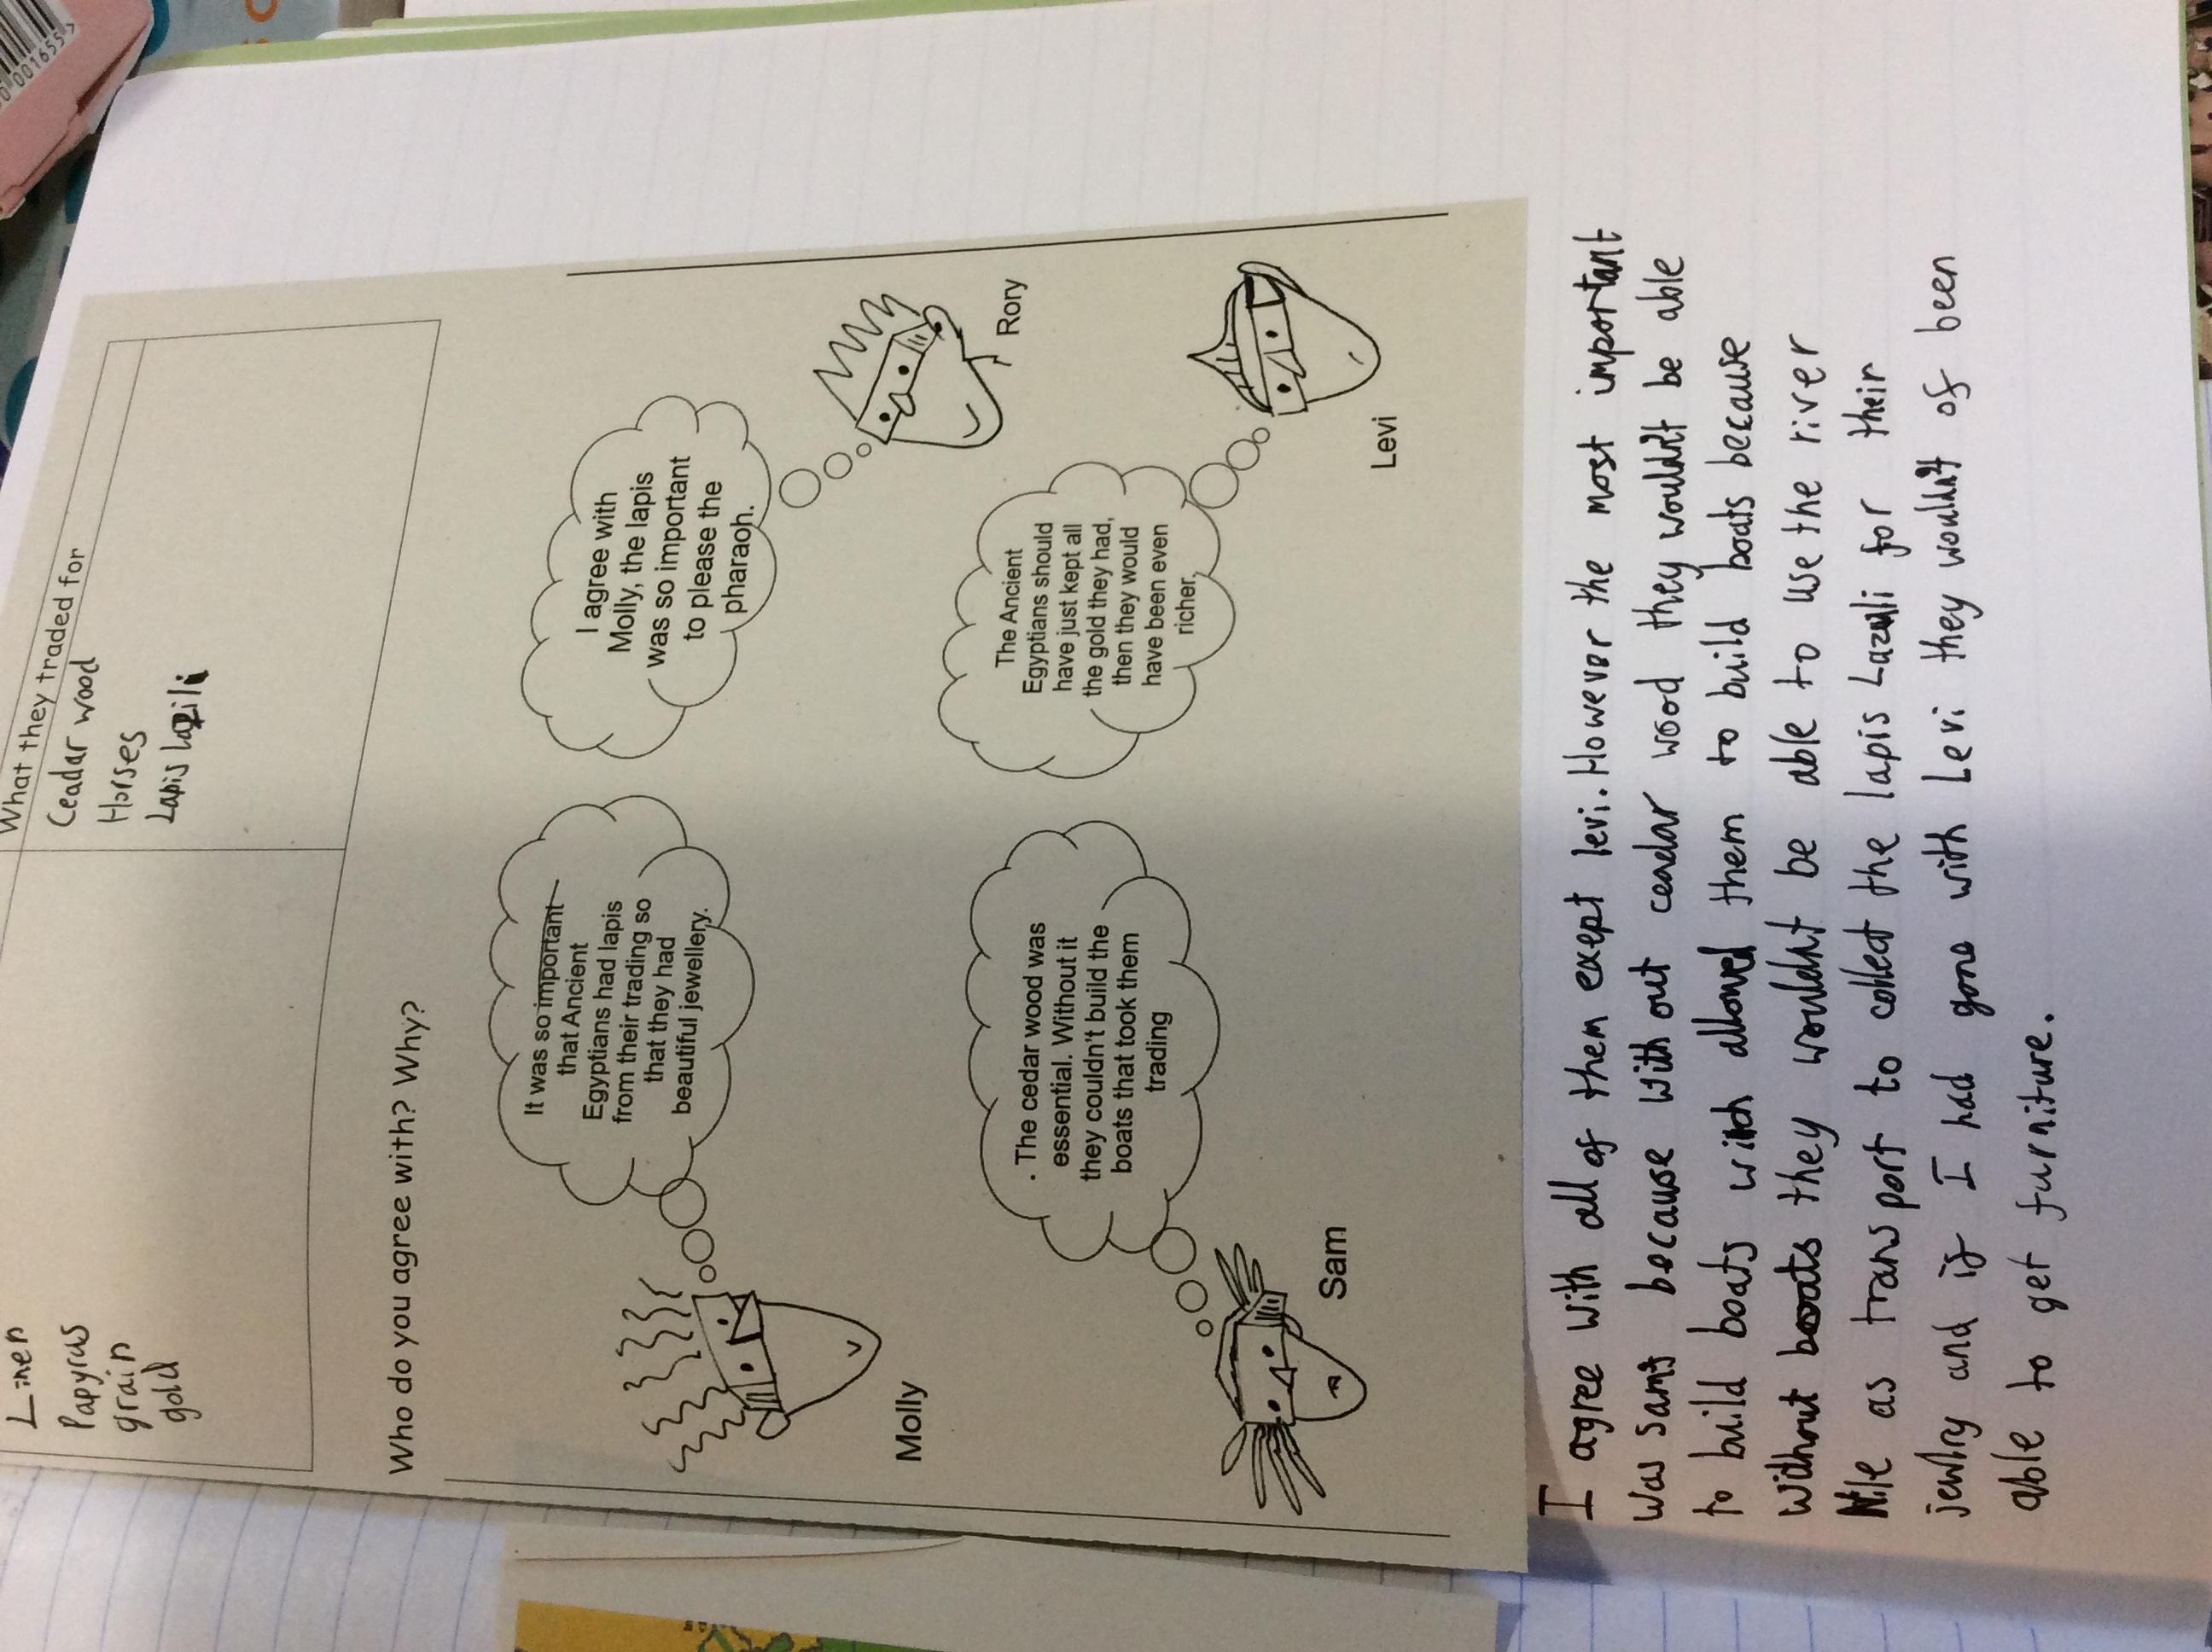 0 001655
What they traded for
Linen
Papyrus
grain
gold
Ceadar wood
Horses
Lapis lazili
Who do you agree with? Why?
It was so important
that Ancient
Egyptians had lapis
from their trading so
that they had
beautiful jewellery.
Molly
I agree with
Molly, the lapis
was so important
to please the
pharaoh.
Rory
. The cedar wood was
essential. Without it
they couldn't build the
boats that took them
trading
Sam
The Ancient
Egyptians should
have just kept all
the gold they had,
then they would
have been even
richer.
Levi
I agree with all of them exept levi. However the most important
was sams because with out ceadar wood they wouldn't be able
to build boats wich allowed them to build boats because
without boats they wouldn't be able to use the river
Nile as trans port to collect the lapis Lazuli for their
jewlry and if I had gone with Levi they wouldn't of been
able to get furniture.